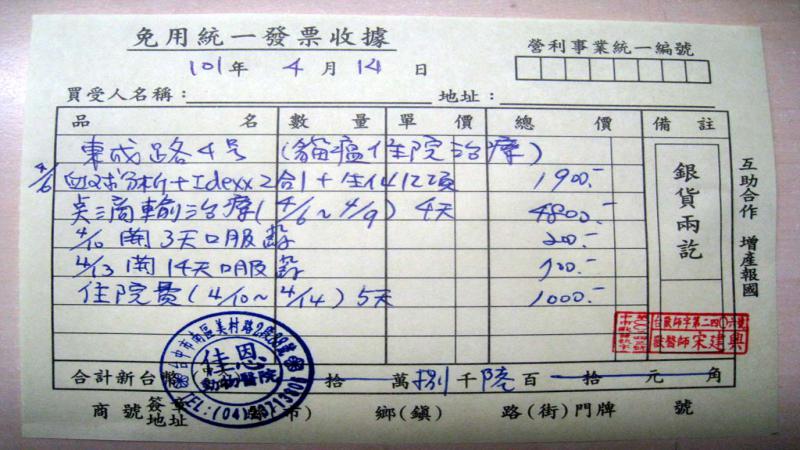 免用統一發票收據
營利事業統一編號
101年 4月 14日
買受人名稱： 地址：
品名 數量 單價 總價 備註
東成路4号 (貓瘟住院治療)
4/6 血球分析+Idexx2合1+生化12項 1900.-
点滴輸治療(4/6~4/9) 4天 4800.-
4/10 開3天口服 200.-
4/13 開14天口服 700.-
住院費(4/10~4/14) 5天 1000.-
銀貨兩訖
互助合作 增產報國
獸醫師 宋建興
台中市南區美村路2段
佳恩
動物醫院
TEL:(04)
合計新台幣 拾 萬 捌 千 陸 百 拾 元 角
商號簽章地址 市) 鄉(鎮) 路(街)門牌 號